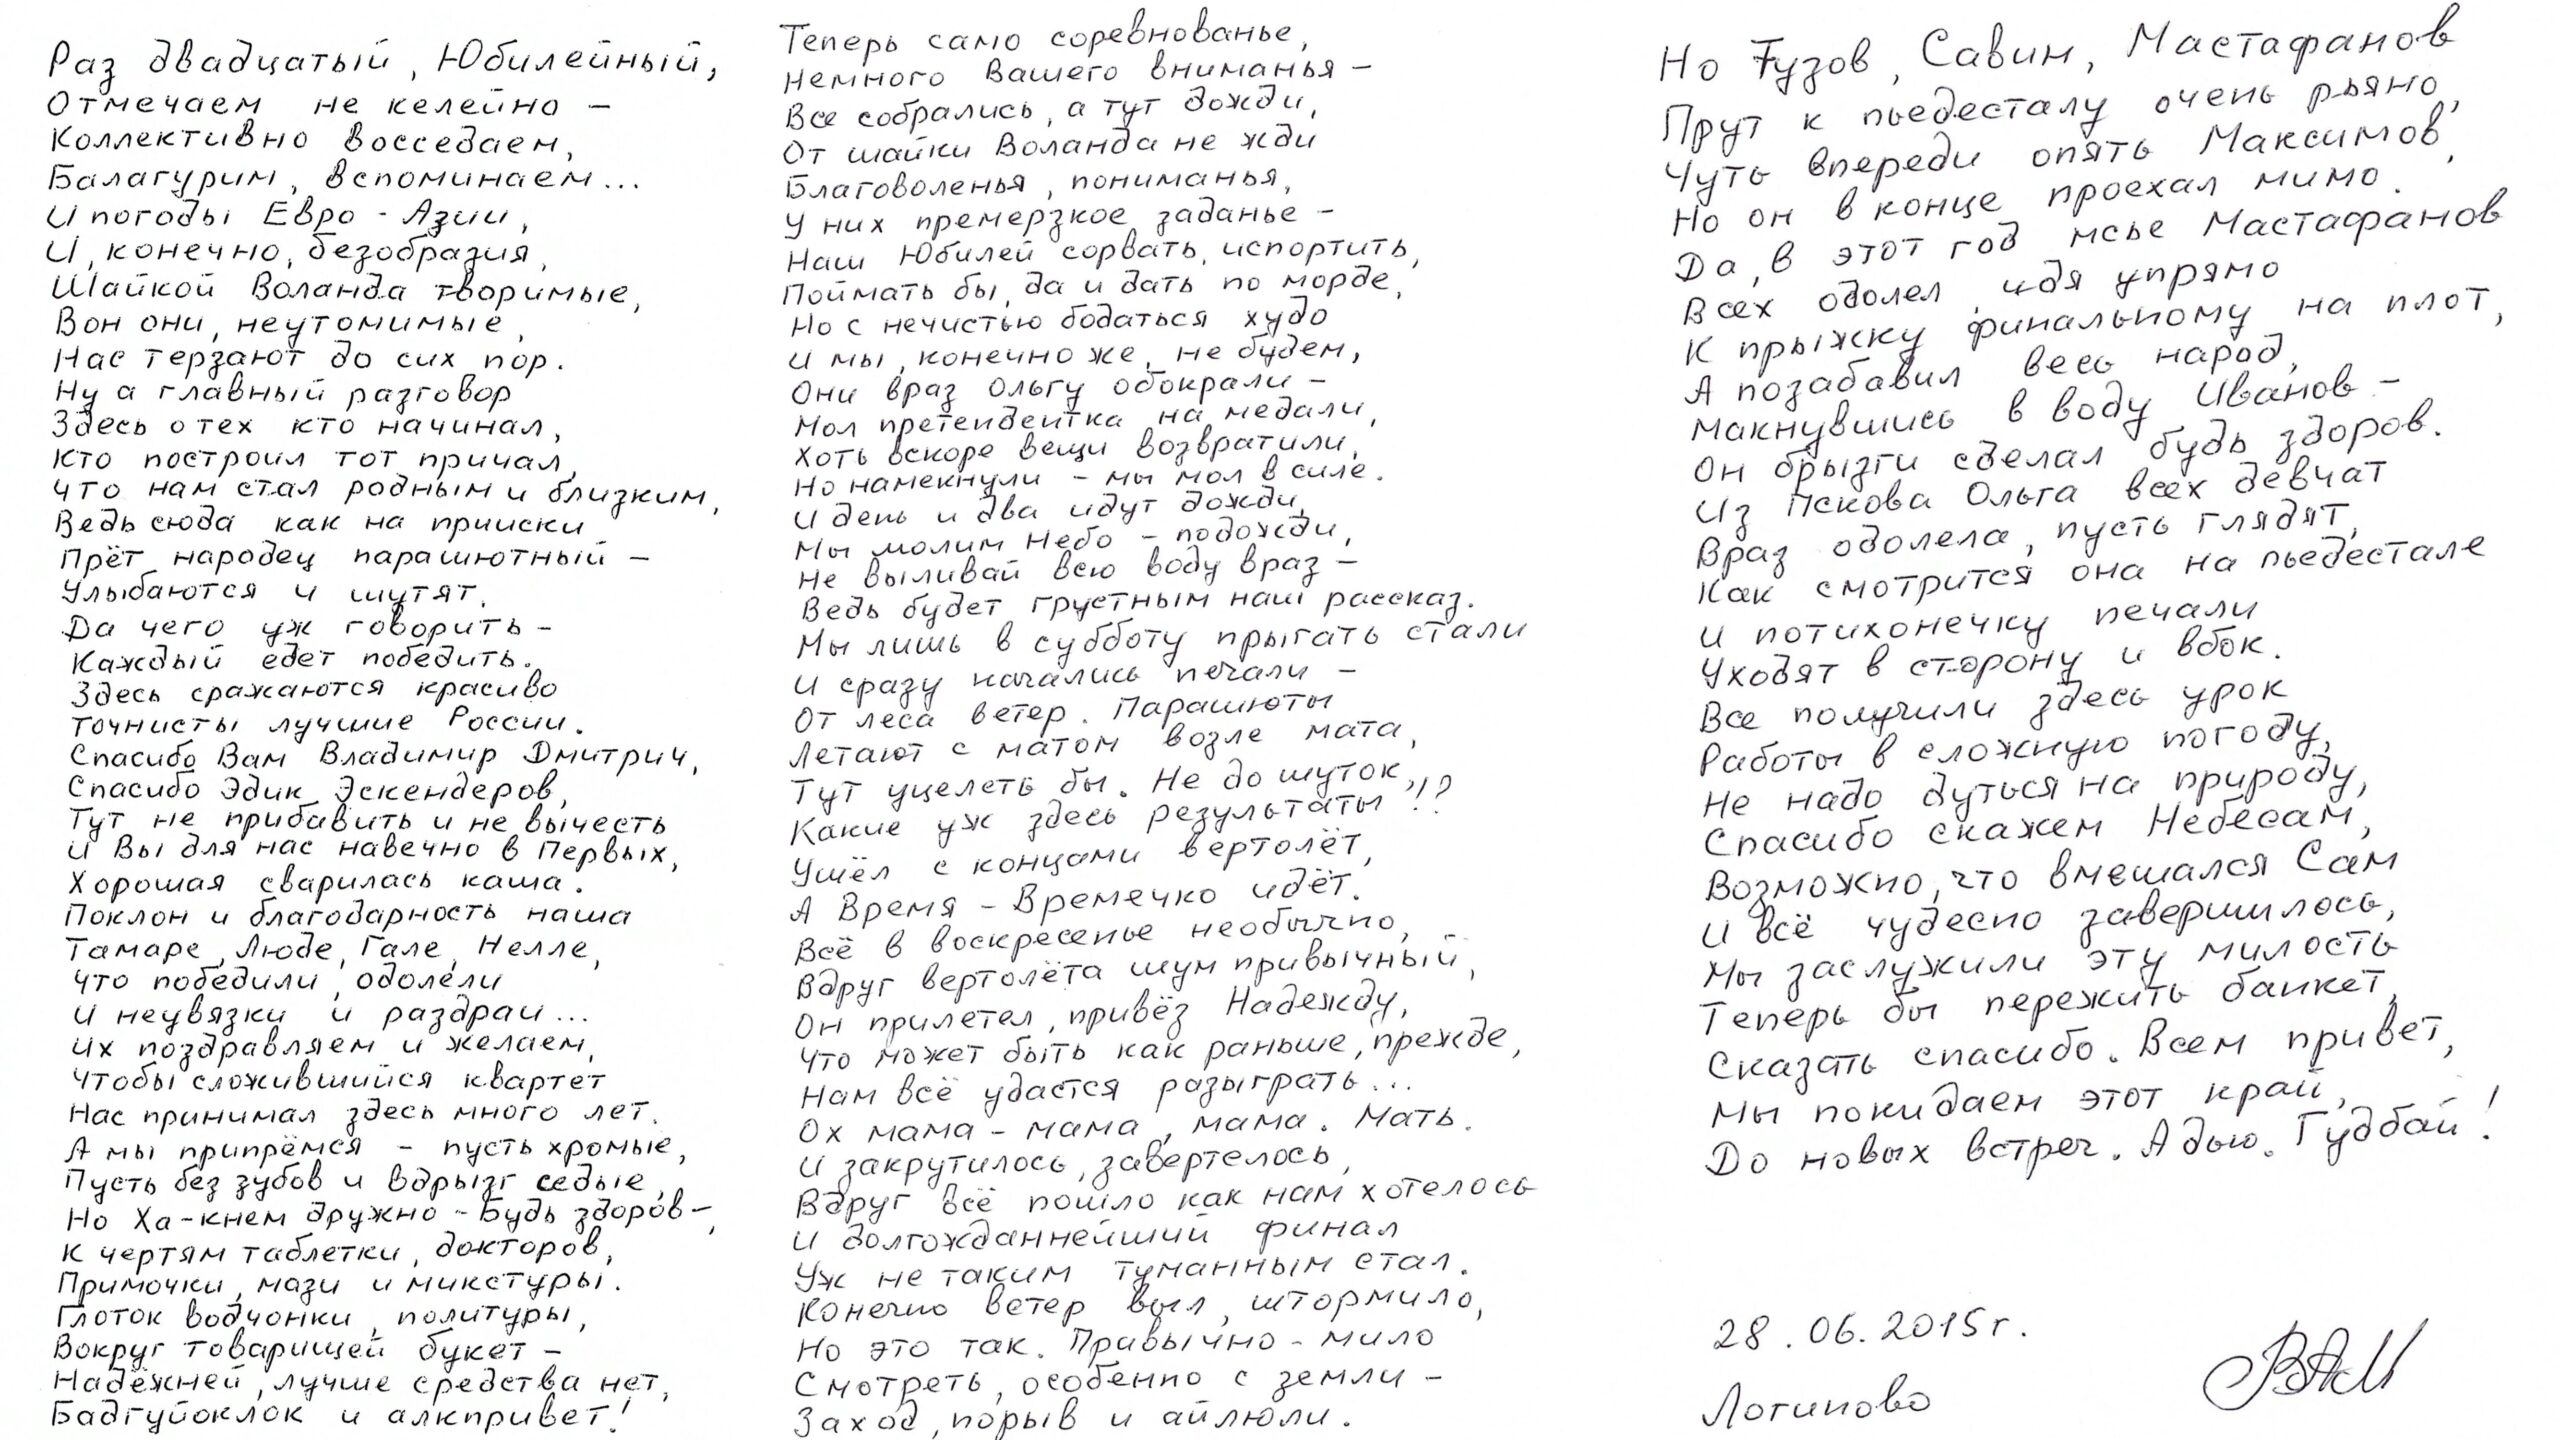 Раз двадцатый, Юбилейный,
Отмечаем не келейно –
Коллективно восседаем,
Балагурим, вспоминаем...
И погоды Евро - Азии,
И, конечно, безобразия,
Шайкой Воланда творимые,
Вон они, неутомимые,
Нас терзают до сих пор.
Ну а главный разговор
Здесь о тех кто начинал,
Кто построил тот причал,
Что нам стал родным и близким,
Ведь сюда как на прииски
Прёт народец парашютный –
Улыбаются и шутят.
Да чего уж говорить –
Каждый едет победить.
Здесь сражаются красиво
Точнисты лучшие России.
Спасибо Вам Владимир Дмитрич,
Спасибо Эдик Эскендеров,
Тут не прибавить и не вычесть
И Вы для нас навечно в Первых,
Хорошая сварилась каша.
Поклон и благодарность наша
Тамаре, Люде, Гале, Нелле,
Что победили, одолели
И неувязки и раздраи...
Их поздравляем и желаем,
Чтобы сложившийся квартет
Нас принимал здесь много лет.
А мы припрёмся – пусть хромые,
Пусть без зубов и вдрызг седые,
Но Ха-кнем дружно – Будь здоров –,
К чертям таблетки, докторов,
Примочки, мази и микстуры.
Глоток водчонки, политуры,
Вокруг товарищей букет –
Надёжней, лучше средства нет,
Бадгуйоклок и алкпривет!
Теперь само соревнованье,
Немного Вашего вниманья –
Все собрались, а тут дожди,
От шайки Воланда не жди
Благоволенья, пониманья,
У них премерзкое заданье –
Наш Юбилей сорвать, испортить,
Поймать бы, да и дать по морде,
Но с нечистью бодаться худо
И мы, конечно же, не будем,
Они враз Ольгу обокрали –
Мол претендентка на медали,
Хоть вскоре вещи возвратили,
Но намекнули – мы мол в силе.
И день и два идут дожди,
Мы молим Небо – подожди,
Не выливай всю воду враз –
Ведь будет грустным наш рассказ.
Мы лишь в субботу прыгать стали
И сразу начались печали –
От леса ветер. Парашюты
Летают с матом возле мата,
Тут уцелеть бы. Не до шуток,
Какие уж здесь результаты!!?
Ушёл с концами вертолёт,
А Время – Времечко идёт.
Всё в воскресенье необычно,
Вдруг вертолёта шум привычный,
Он прилетел, привёз Надежду,
Что может быть как раньше, прежде,
Нам всё удастся разыграть...
Ох мама – мама, мама. Мать.
И закрутилось, завертелось,
Вдруг всё пошло как нам хотелось
И долгожданнейший финал
Уж не таким туманным стал.
Конечно ветер выл, штормило,
Но это так. Привычно – мило
Смотреть, особенно с земли –
Заход, порыв и айлюли.
Но Гузов, Савин, Мастафанов
Прут к пьедесталу очень рьяно,
Чуть впереди опять Максимов,
Но он в конце проехал мимо.
Да, в этот год мсье Мастафанов
Всех одолел, идя упрямо
К прыжку финальному на плот,
А позабавил весь народ,
Макнувшись в воду Иванов –
Он брызги сделал будь здоров.
Из Пскова Ольга всех девчат
Враз одолела, пусть глядят,
Как смотрится она на пьедестале
И потихонечку печали
Уходят в сторону и вбок.
Все получили здесь урок
Работы в сложную погоду,
Не надо дуться на природу,
Спасибо скажем Небесам,
Возможно, что вмешался Сам
И всё чудесно завершилось,
Мы заслужили эту милость
Теперь бы пережить банкет,
Сказать спасибо. Всем привет,
Мы покидаем этот край,
До новых встреч. Адью. Гудбай!
28.06.2015г.
Логиново
ВАМ